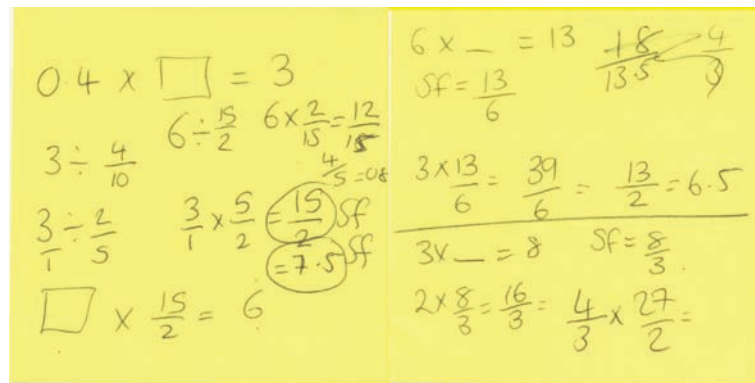 0.4 × □ = 3
6 ÷ 15/2 6 × 2/15 = 12/15
3 ÷ 4/10
4/5 = 0.8
3/1 ÷ 2/5 3/1 × 5/2 = 15/2 Sf
= 7.5 Sf
□ × 15/2 = 6
6 × _ = 13
Sf = 13/6
3 × 13/6 = 39/6 = 13/2 = 6.5
3 × _ = 8 Sf = 8/3
2 × 8/3 = 16/3 = 4/3 × 27/2 =